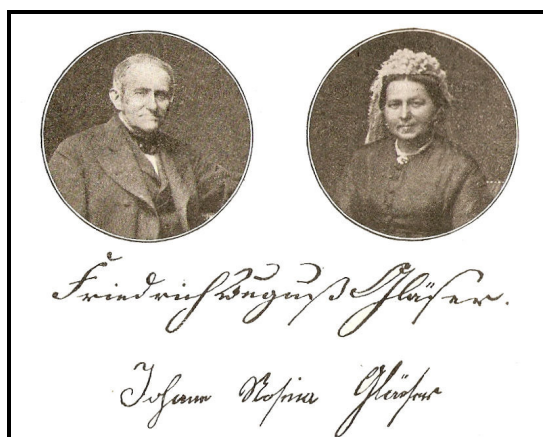 Friedrich August Gläser.
Johane Rosina Gläser